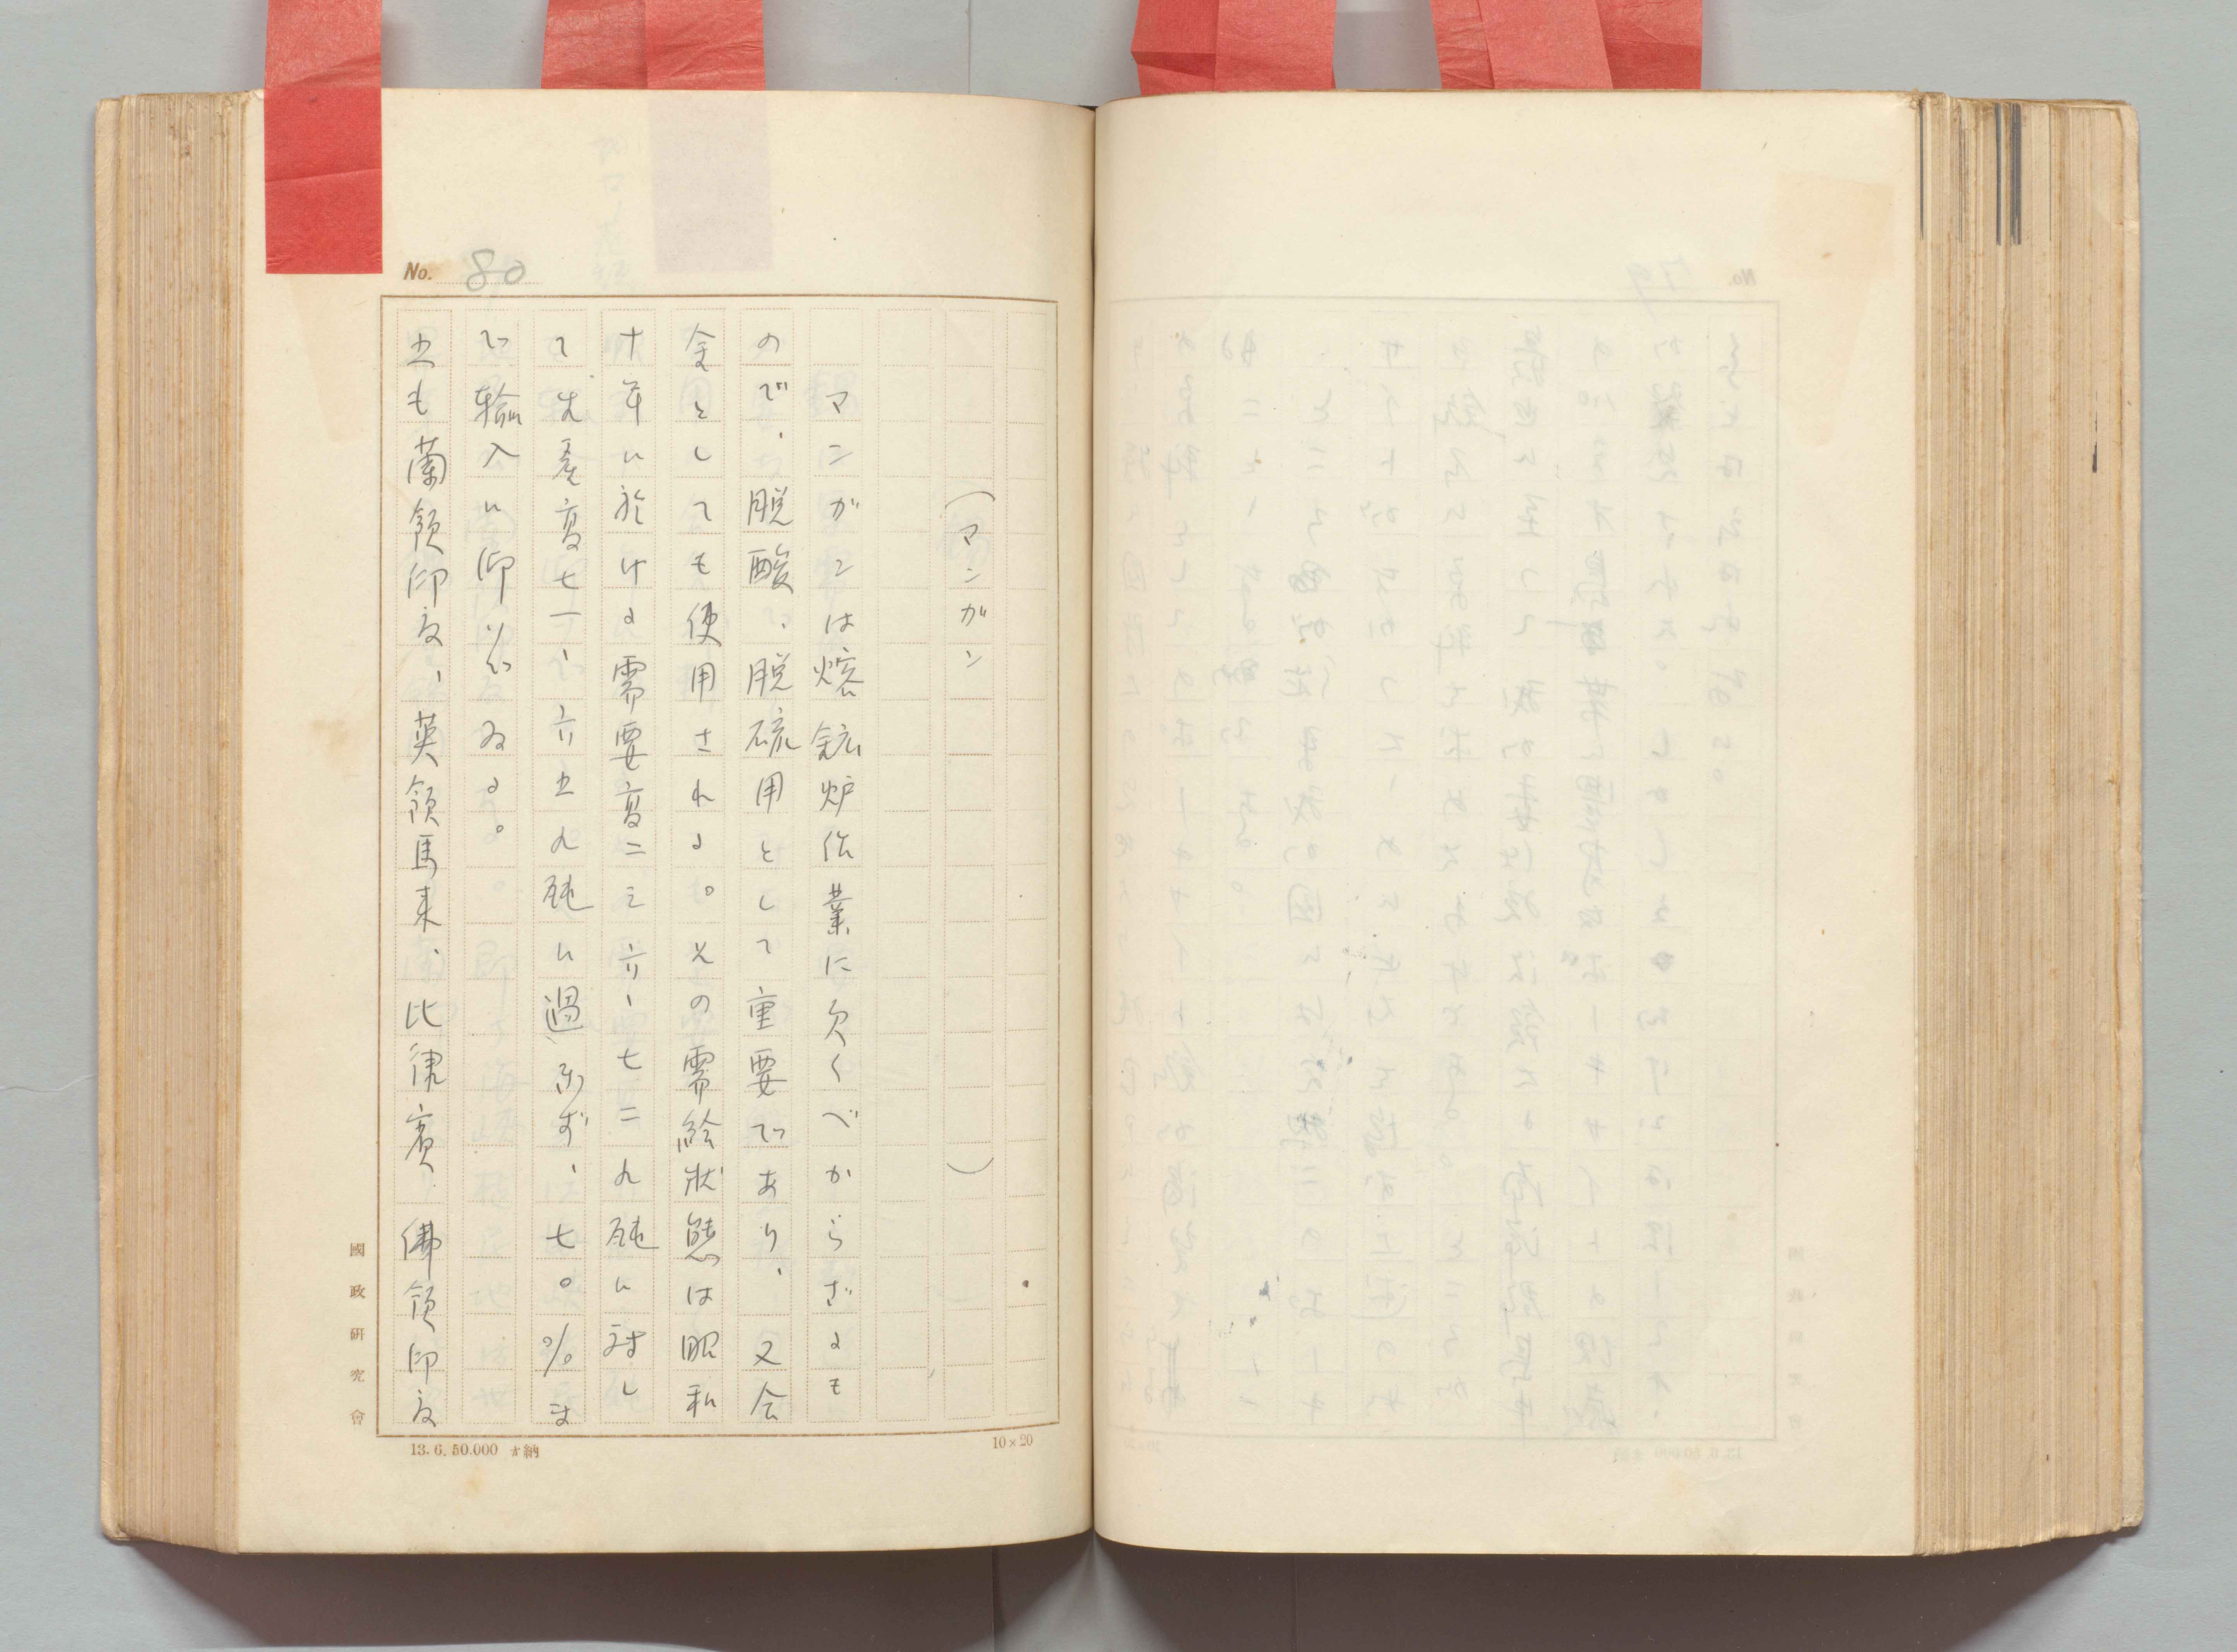 No. 80
（マンガン）
マンガンは熔鉱炉作業に欠くべからざるも
ので、脱酸、脱硫用として重要であり、又合
金としても使用される。その需給状態は昭和
十年に於ける需要高二三六、七二九砘に対し
て生産高七一、六五九砘に過ぎず、七〇%ま
で輸入に仰いでゐる。
も蘭領印度、英領馬来、比律賓、佛領印度
國政研究會
13.6.50.000 納
10×20